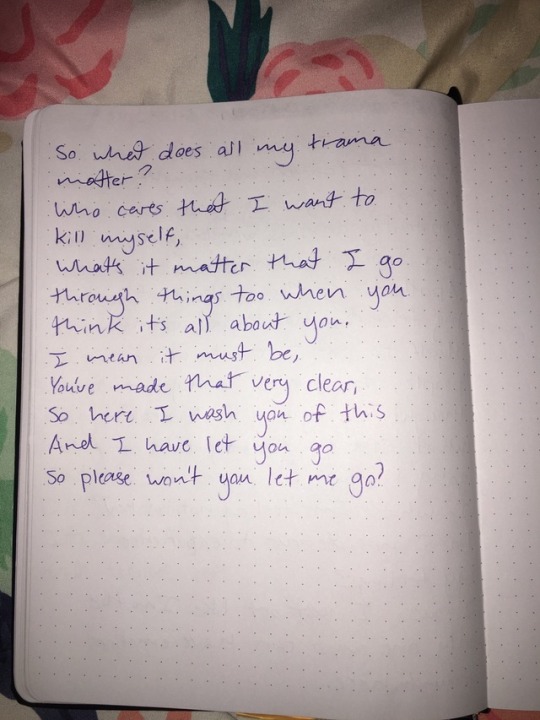 So what does all my trama
matter?
Who cares that I want to
kill myself,
What's it matter that I go
through things too when you
think it's all about you.
I mean it must be,
You've made that very clear,
So here I wash you of this
And I have let you go
So please won't you let me go?